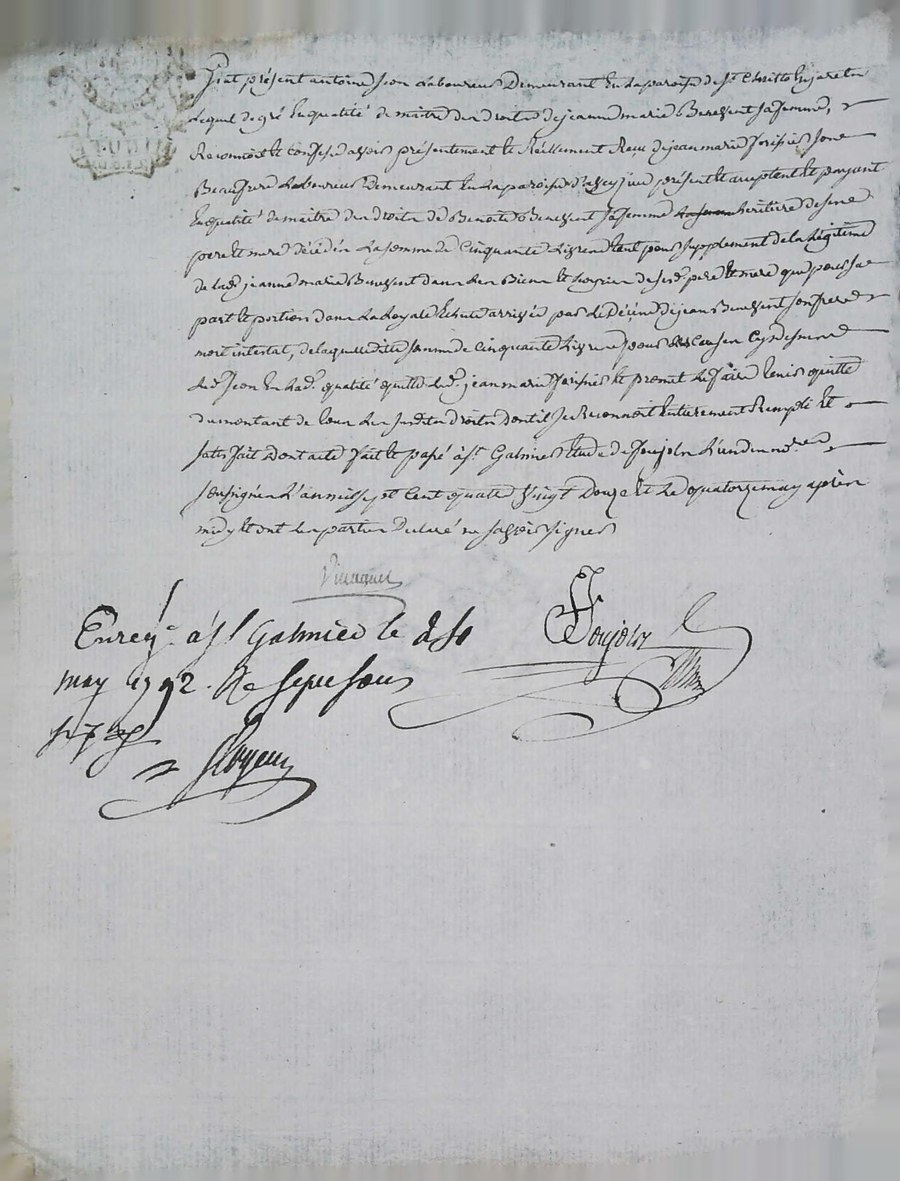 fut présent antoine jeon Laboureur Demeurant En la paroisse de St Christo En jarest
Lequel de gré En qualité de maitre des droits de jeanne marie Benevent sa femme,
Reconnoit et confesse avoir présentement et Réellement Reçu de jean marie son
Beaufrere Laboureur Demeurant En la paroisse d' present et acceptant et payant
En qualité de maitre des droits de Benoite Benevent sa femme heritiere de ses
pere et mere décédés La somme de Cinquante Livres pour supplement de la Légitime
de lad. jeanne marie Benevent dans Les Biens et hoyries de sesd. pere et mere que pour sa
part et portion dans La Loyale Echute arrivée par Le Décès de jean Benevent son frere
mort intestat, de laquelle ditte somme de Cinquante Livres pour Les causes Cydessus
Led. jeon En lad. qualité quitte led. jean marie et promet Le faire tenir quitte
du montant de tous Les susdits droits Dont il se Reconnoit Entierement Rempli et
satisfait Dont acte fait et passé à St Galmier Etude de Poujols L'un des nres
soussignés L'an mil sept Cent quatre vingt Douze et Le quatorze may après
midy et ont Les parties Declaré ne savoir signer
Enregé à St Galmier le
may 1792. Re sous
Poujols